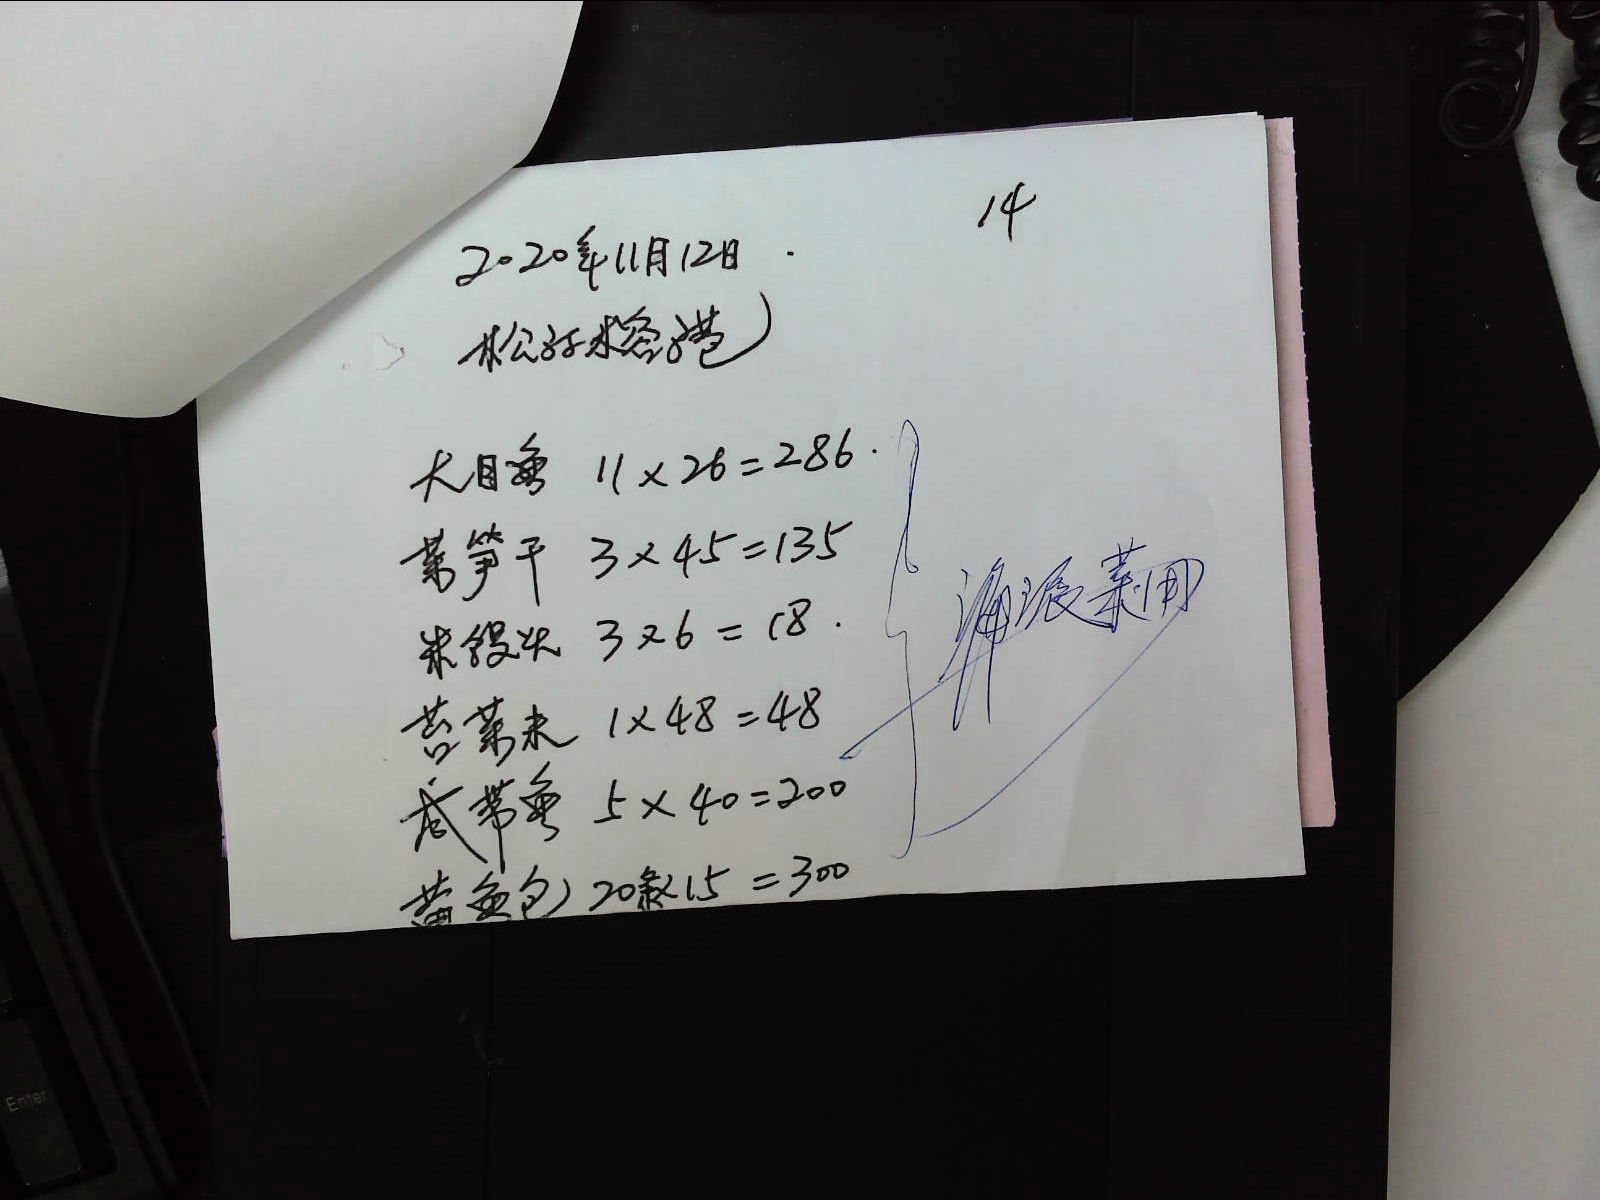 14
2020年11月12日.
大目鱼 11×26=286.
菜笋干 3×45=135
米馒头 3×6=18.
苔菜末 1×48=48
带鱼 5×40=200
黄鱼包 20×15=300
海派菜用
Enter